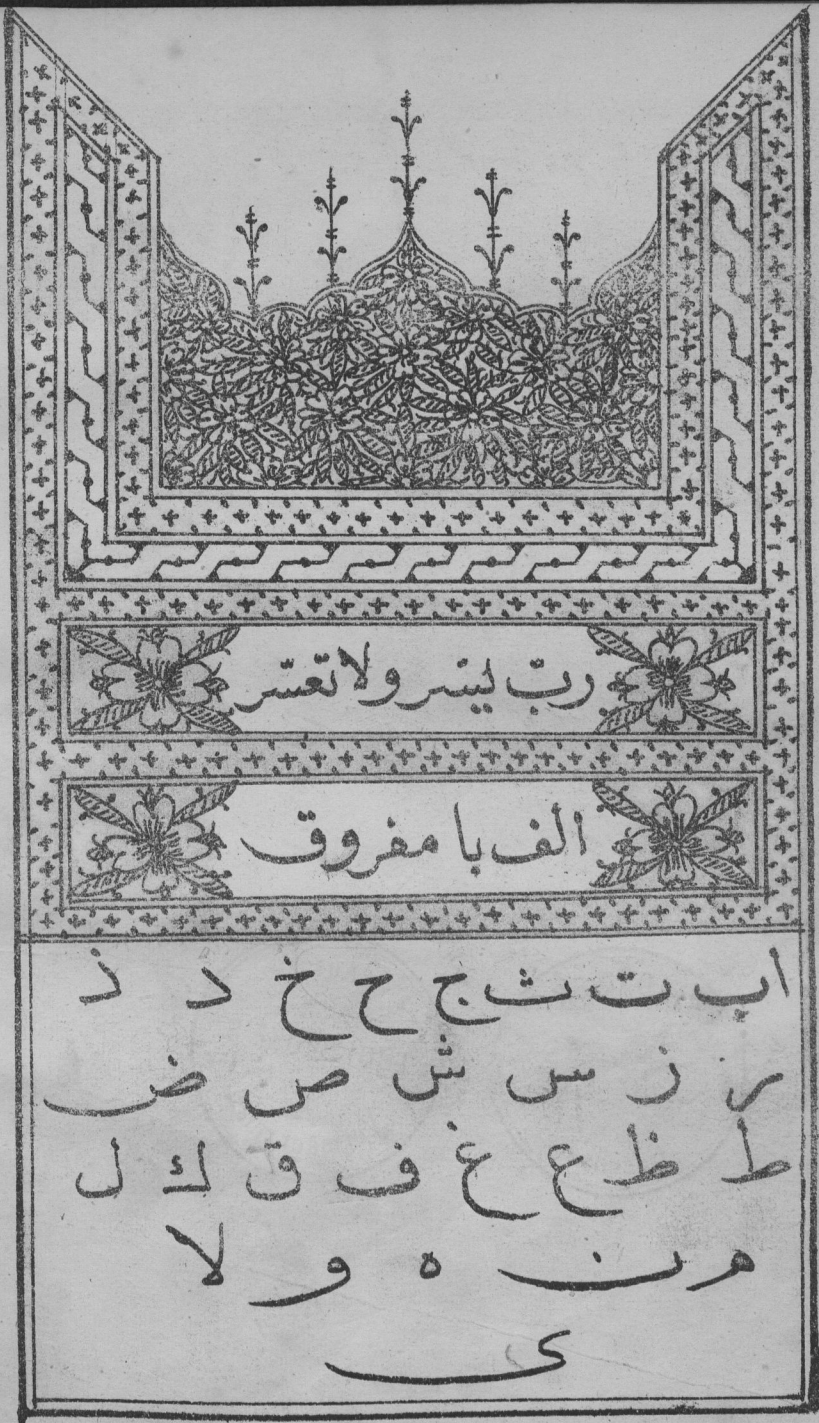 ربّ يسّر ولا تعسّر
الف با مفروق
ا ب ت ث ج ح خ د ذ
ر ز س ش ص ض
ط ظ ع غ ف ق ك ل
م ن ه و لا
ى